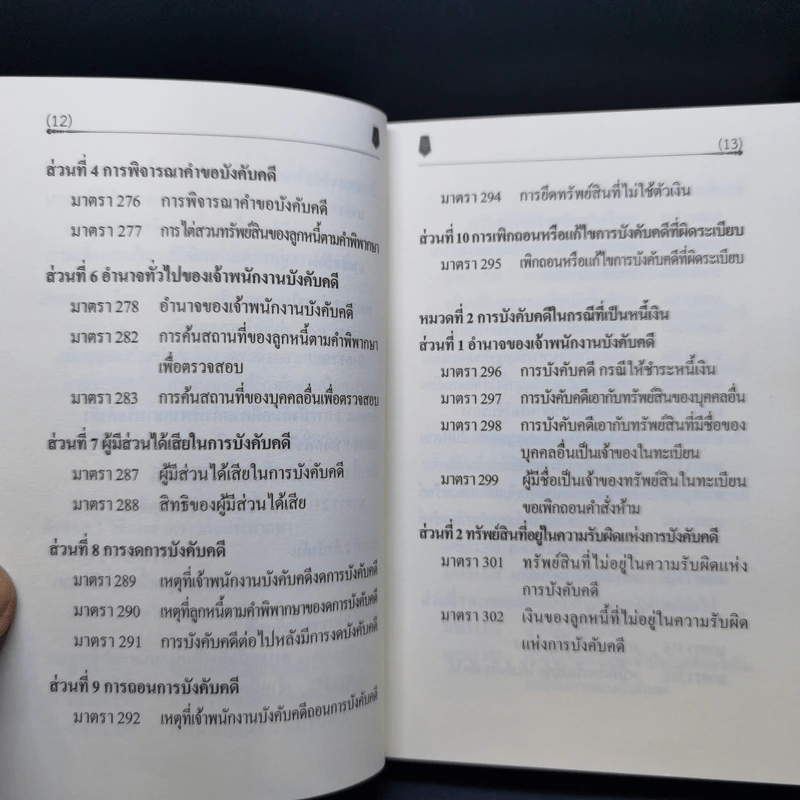 (12)
ส่วนที่ 4 การพิจารณาคำขอบังคับคดี
มาตรา 276 การพิจารณาคำขอบังคับคดี
มาตรา 277 การไต่สวนทรัพย์สินของลูกหนี้ตามคำพิพากษา
ส่วนที่ 6 อำนาจทั่วไปของเจ้าพนักงานบังคับคดี
มาตรา 278 อำนาจของเจ้าพนักงานบังคับคดี
มาตรา 282 การค้นสถานที่ของลูกหนี้ตามคำพิพากษา
เพื่อตรวจสอบ
มาตรา 283 การค้นสถานที่ของบุคคลอื่นเพื่อตรวจสอบ
ส่วนที่ 7 ผู้มีส่วนได้เสียในการบังคับคดี
มาตรา 287 ผู้มีส่วนได้เสียในการบังคับคดี
มาตรา 288 สิทธิของผู้มีส่วนได้เสีย
ส่วนที่ 8 การงดการบังคับคดี
มาตรา 289 เหตุที่เจ้าพนักงานบังคับคดีงดการบังคับคดี
มาตรา 290 เหตุที่ลูกหนี้ตามคำพิพากษาของดการบังคับคดี
มาตรา 291 การบังคับคดีต่อไปหลังมีการงดบังคับคดี
ส่วนที่ 9 การถอนการบังคับคดี
มาตรา 292 เหตุที่เจ้าพนักงานบังคับคดีถอนการบังคับคดี
(13)
มาตรา 294 การยึดทรัพย์สินที่ไม่ใช้ตัวเงิน
ส่วนที่ 10 การเพิกถอนหรือแก้ไขการบังคับคดีที่ผิดระเบียบ
มาตรา 295 เพิกถอนหรือแก้ไขการบังคับคดีที่ผิดระเบียบ
หมวดที่ 2 การบังคับคดีในกรณีที่เป็นหนี้เงิน
ส่วนที่ 1 อำนาจของเจ้าพนักงานบังคับคดี
มาตรา 296 การบังคับคดี กรณีให้ชำระหนี้เงิน
มาตรา 297 การบังคับคดีเอากับทรัพย์สินของบุคคลอื่น
มาตรา 298 การบังคับคดีเอากับทรัพย์สินที่มีชื่อของ
บุคคลอื่นเป็นเจ้าของในทะเบียน
มาตรา 299 ผู้มีชื่อเป็นเจ้าของทรัพย์สินในทะเบียน
ขอเพิกถอนคำสั่งห้าม
ส่วนที่ 2 ทรัพย์สินที่อยู่ในความรับผิดแห่งการบังคับคดี
มาตรา 301 ทรัพย์สินที่ไม่อยู่ในความรับผิดแห่ง
การบังคับคดี
มาตรา 302 เงินของลูกหนี้ที่ไม่อยู่ในความรับผิด
แห่งการบังคับคดี